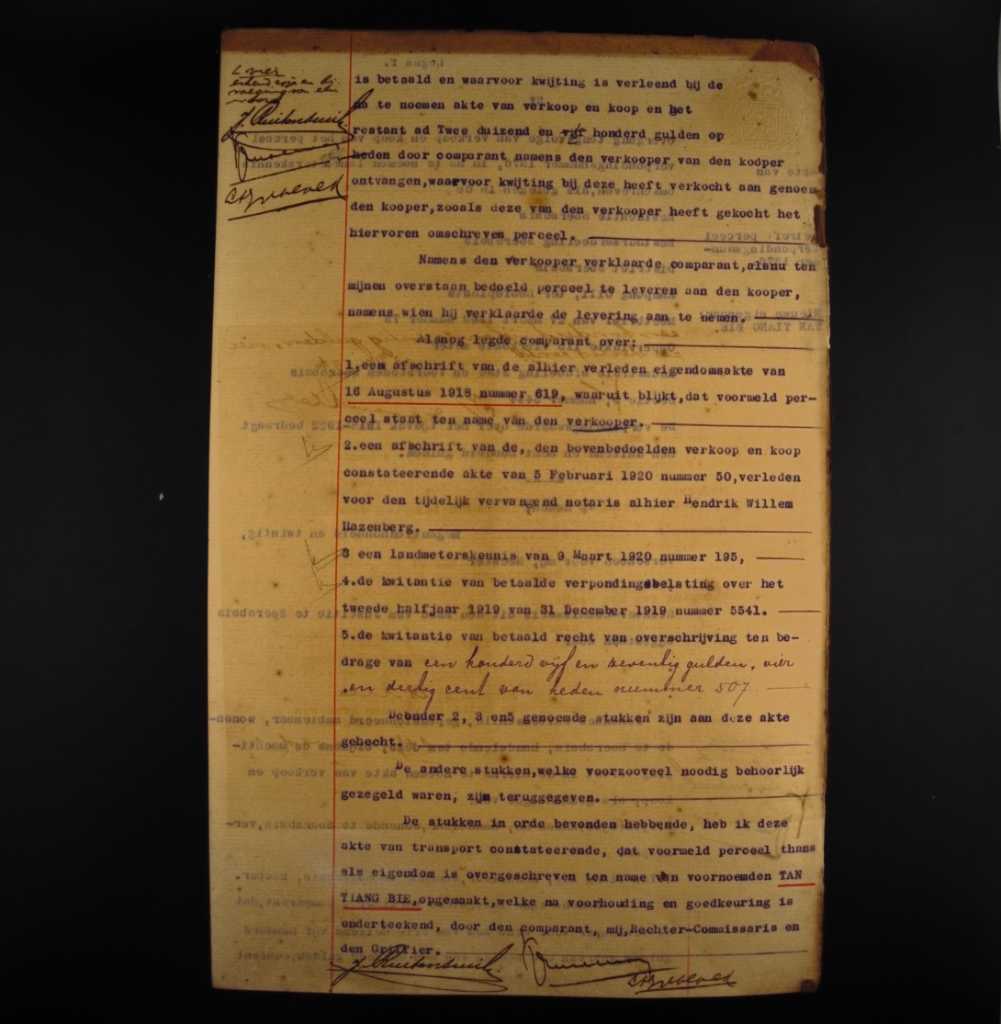 is betaald en waarvoor kwijting is verleend bij de
na te noemen akte van verkoop en koop en het
restant ad Twee duizend en vijf honderd gulden op
heden door comparant namens den verkooper van den kooper
ontvangen,waarvoor kwijting bij deze heeft verkocht aan genoem
den kooper,zooals deze van den verkooper heeft gekocht het
hiervoren omschreven perceel.
Namens den verkooper verklaarde comparant,alsnu ten
mijnen overstaan bedoeld perceel te leveren aan den kooper,
namens wien hij verklaarde de levering aan te nemen.
Alsnog legde comparant over:
1.een afschrift van de alhier verleden eigendomsakte van
16 Augustus 1918 nummer 619, waaruit blijkt,dat voormeld per-
ceel staat ten name van den verkooper.
2.een afschrift van de, den bovenbedoelden verkoop en koop
constateerende akte van 5 Februari 1920 nummer 50,verleden
voor den tijdelijk vervangend notaris alhier Hendrik Willem
Hazenberg.
3 een landmeterskennis van 9 Maart 1920 nummer 195,
4.de kwitantie van betaalde verpondingsbelasting over het
tweede halfjaar 1919 van 31 December 1919 nummer 5541.
5.de kwitantie van betaald recht van overschrijving ten be-
drage van een honderd vijf en zeventig gulden, vier
en dertig cent van heden nummer 507
Deonder 2, 3 en5 genoemde stukken zijn aan deze akte
gehecht.
De andere stukken,welke voorzooveel noodig behoorlijk
gezegeld waren, zijn teruggegeven.
De stukken in orde bevonden hebbende, heb ik deze
akte van transport constateerende, dat voormeld perceel thans
als eigendom is overgeschreven ten name van voornoemden TAN
TIANG BIE,opgemaakt,welke na voorhouding en goedkeuring is
onderteekend, door den comparant, mij,Rechter-Commissaris en
den Griffier.